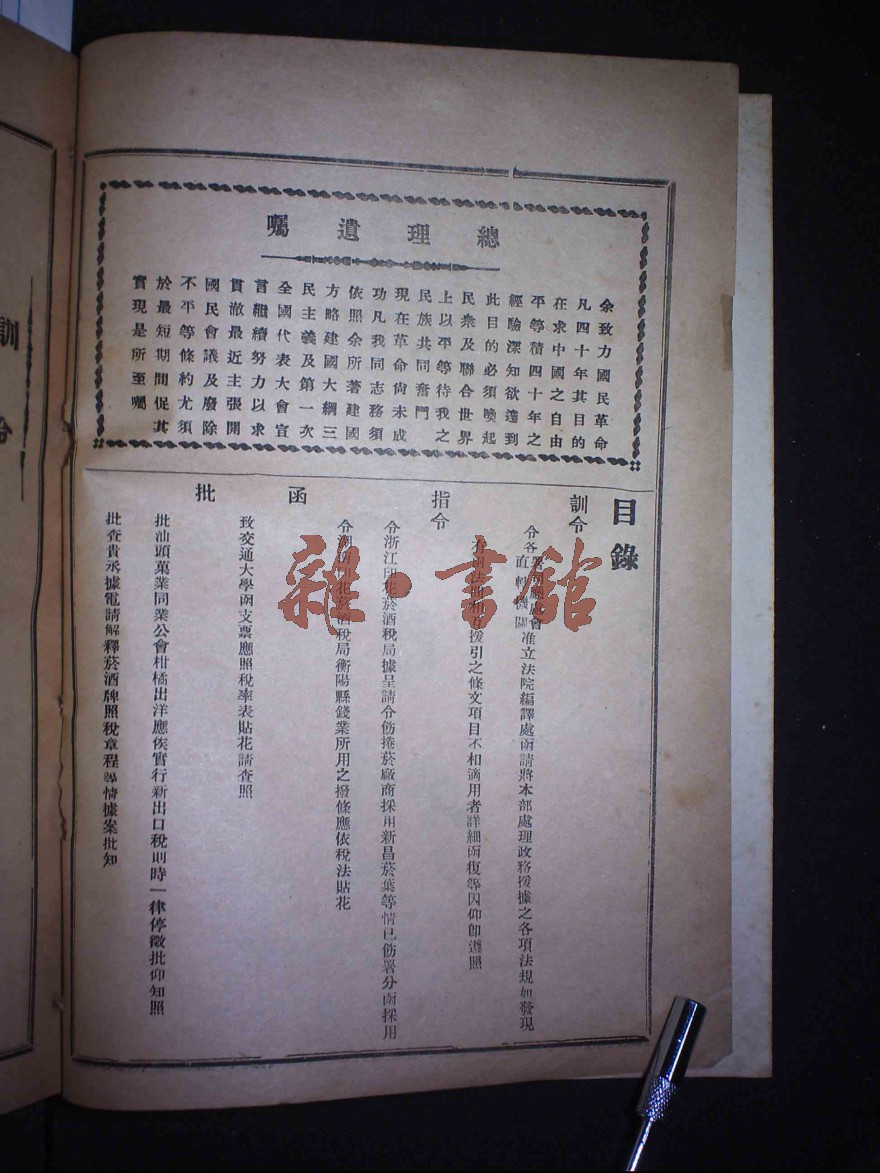 總理遺囑
余致力國民革命
凡四十年其目的
在求中國之自由
平等積四十年之
經驗深知欲達到
此目的必須喚起
民衆及聯合世界
上以平等待我之
民族共同奮鬥
現在革命尙未成
功凡我同志務須
依照余所著建國
方略建國大綱三
民主義及第一次
全國代表大會宣
言繼續努力以求
貫澈最近主張開
國民會議及廢除
不平等條約尤須
於最短期間促其
實現是所至囑
目錄
訓令
令各直轄機關准立法院編譯處函請將本部處理政務援據之各項法規如發現
援引之條文項目不相適用者詳細函復等因仰卽遵照
指令
令浙江印花菸酒稅局據呈請令飭捲菸廠商採用新昌菸葉等情已飭署分函採用
令湖南印花菸酒稅局衡陽縣錢業所用之撥條應依稅法貼花
函
致交通大學函支票應照稅率表貼花請查照
批
批汕頭菓業同業公會柑橘出洋應俟實行新出口稅則時一律停徵批仰知照
批查貴永據電請解釋菸酒牌照稅章程等情據案批知
訓令
雜·書館